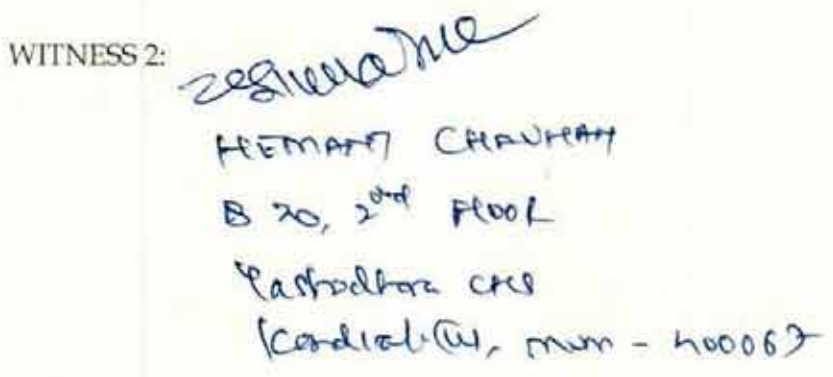 WITNESS 2:
HEMANT CHAUHAN
B 20, 2nd FLOOR
Yashodhara CHS
Kandivali (W), Mum - 400067